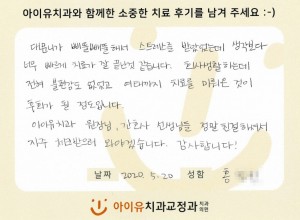 아이유치과와 함께한 소중한 치료 후기를 남겨 주세요 :-)
대문니가 삐뚤삐뚤해서 스트레스를 받았었는데 생각보다
너무 빠르게 치료가 잘 끝난것 같습니다. 회사생활하는데
전혀 불편함도 없었고 여태까지 치료를 미뤄온 것이
후회가 될 정도입니다.
아이유치과 원장님, 간호사 선생님들 정말 친절해서
자주 체크받으러 와야겠습니다. 감사합니다!
날짜 2020. 5. 20 성함 홍
아이유치과교정과 치과의원